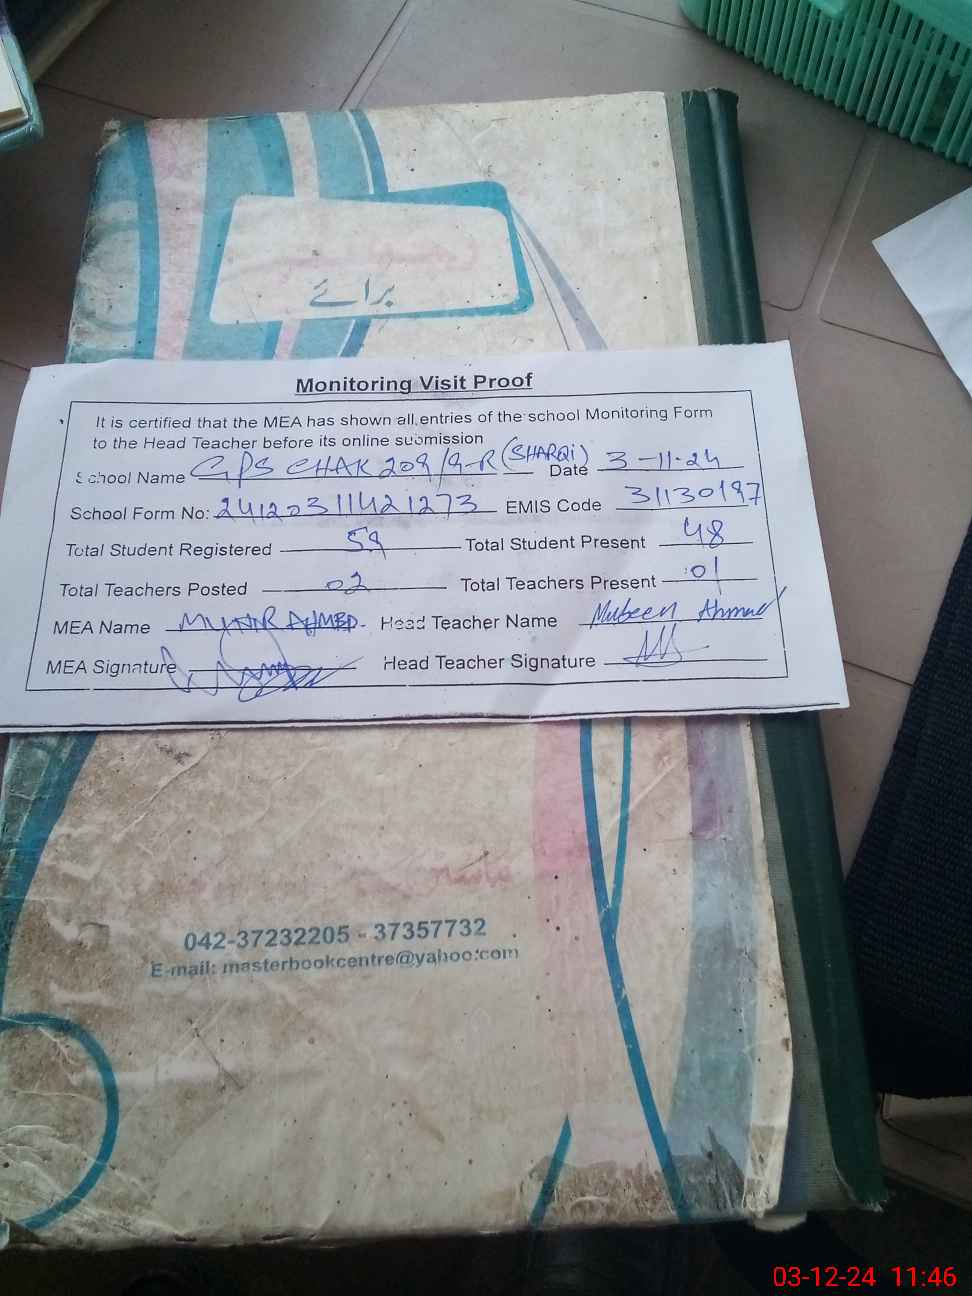 برائے
Monitoring Visit Proof
It is certified that the MEA has shown all entries of the school Monitoring Form
to the Head Teacher before its online submission
School Name GPS CHAK 209/9-R (SHARQI) Date 3-11-24
School Form No: 24120311421273 EMIS Code 31130197
Total Student Registered 59 Total Student Present 48
Total Teachers Posted 02 Total Teachers Present 01
MEA Name AHMED. Head Teacher Name Mubeen Ahmad
MEA Signature Head Teacher Signature
042-37232205 - 37357732
E-mail: masterbookcentre@yahoo.com
03-12-24 11:46